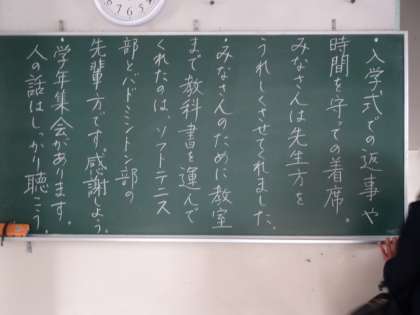 ・入学式での返事や
時間を守っての着席。
みなさんは先生方を
うれしくさせてくれました。
・みなさんのために教室
まで教科書を運んで
くれたのは、ソフトテニス
部とバドミントン部の
先輩方です。感謝しよう。
・学年集会があります。
人の話はしっかり聴こう。